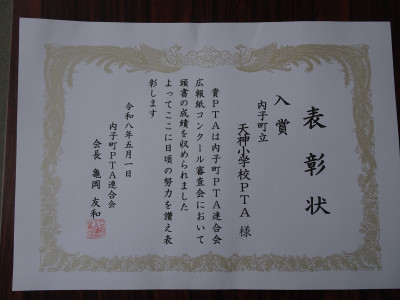 表彰状
入賞
内子町立
天神小学校PTA 様
貴PTAは内子町PTA連合会
広報紙コンクール審査会において
頭書の成績を収められました
よってここに日頃の努力を讃え表
彰します
令和八年五月一日
内子町PTA連合会
会長 亀岡 友和